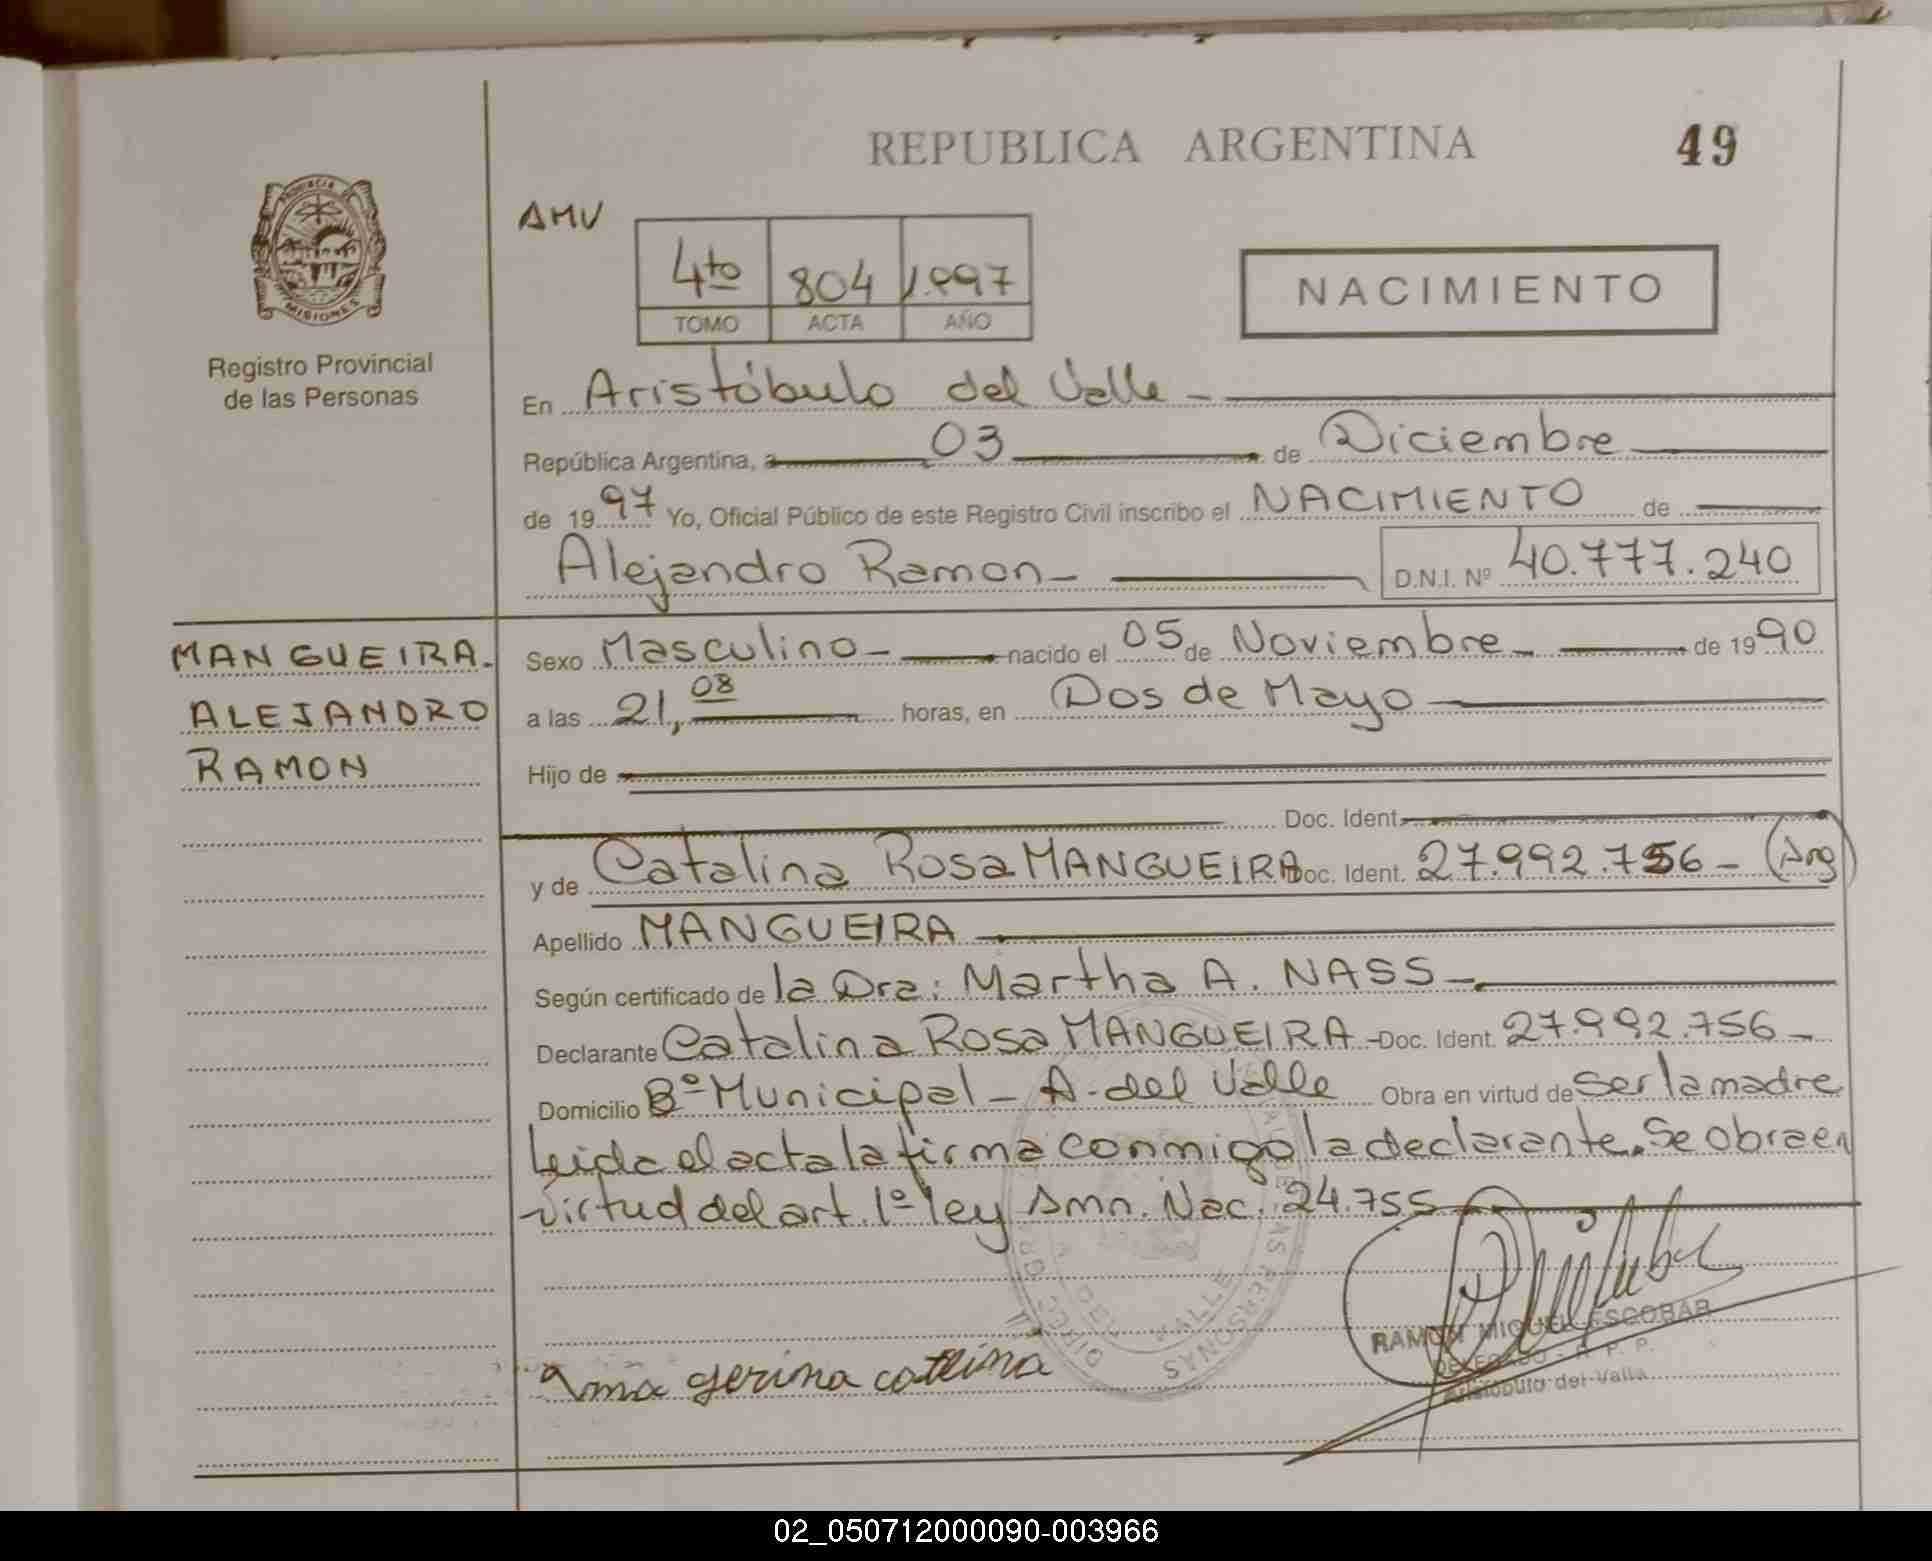 REPUBLICA ARGENTINA
49
PROVINCIA
MISIONES
Registro Provincial
de las Personas
AMV
4to 804 1.997
TOMO ACTA AÑO
NACIMIENTO
En Aristóbulo del Valle
República Argentina, a 03 de Diciembre
de 1997 Yo, Oficial Público de este Registro Civil inscribo el NACIMIENTO de
Alejandro Ramon D.N.I. Nº 40.777.240
MANGUEIRA.
ALEJANDRO
RAMON
Sexo Masculino nacido el 05 de Noviembre de 1990
a las 21,08 horas, en Dos de Mayo
Hijo de
Doc. Ident.
y de Catalina Rosa MANGUEIRA Doc. Ident. 27.992.756 (Arg)
Apellido MANGUEIRA
Según certificado de la Dra: Martha A. NASS
Declarante Catalina Rosa MANGUEIRA Doc. Ident. 27.992.756
Domicilio Bº Municipal - A. del Valle Obra en virtud de ser la madre
Leida el acta la firma conmigo la declarante. Se obra en
virtud del art. 1º ley Amn. Nac. 24.755
RAMON MIGUEL ESCOBAR
DELEGADO - R. P. P.
Aristóbulo del Valle
DEL VALLE
LAS PERSONAS
02_050712000090-003966